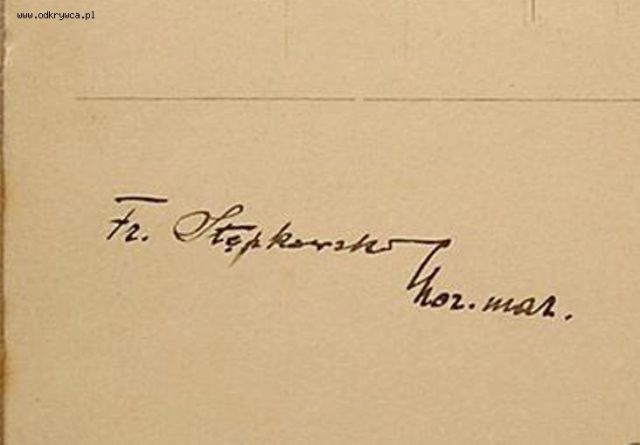 www.odkrywca.pl
Fr. Stępkowski
kor. mar.